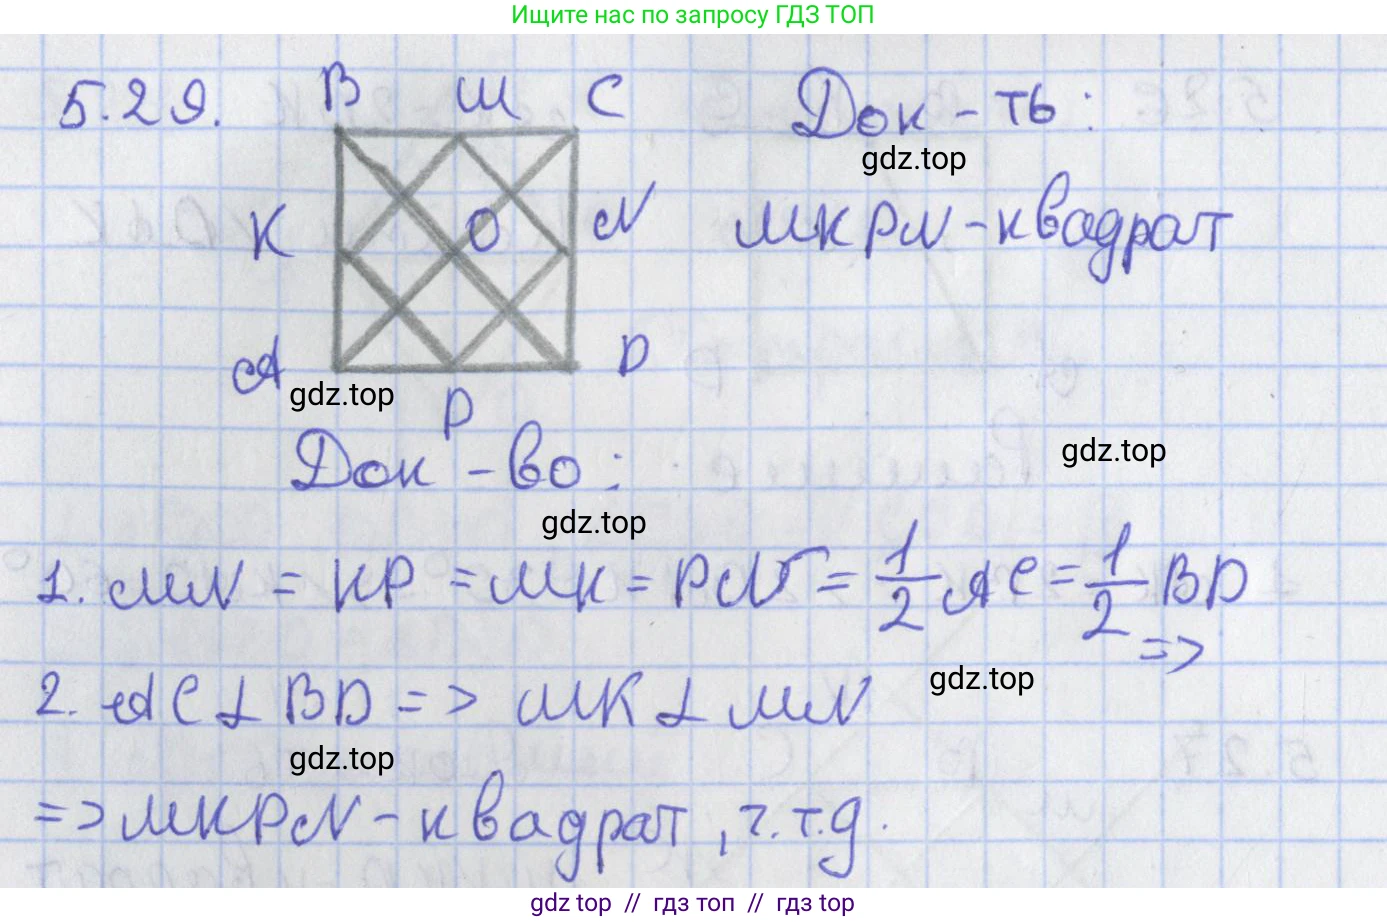 Ищите нас по запросу ГДЗ ТОП
5.29. В М С Док-ть:
gdz.top
К О N МКРN-квадрат
А D
gdz.top
Р
gdz.top
Док-во:
gdz.top
1. MN = КР = МК = PN = 1/2 АС = 1/2 BD =>
gdz.top
2. АС ⊥ BD => МК ⊥ MN
gdz.top
=> МКРN - квадрат, ч.т.д.
gdz.top // гдз топ // гдз top